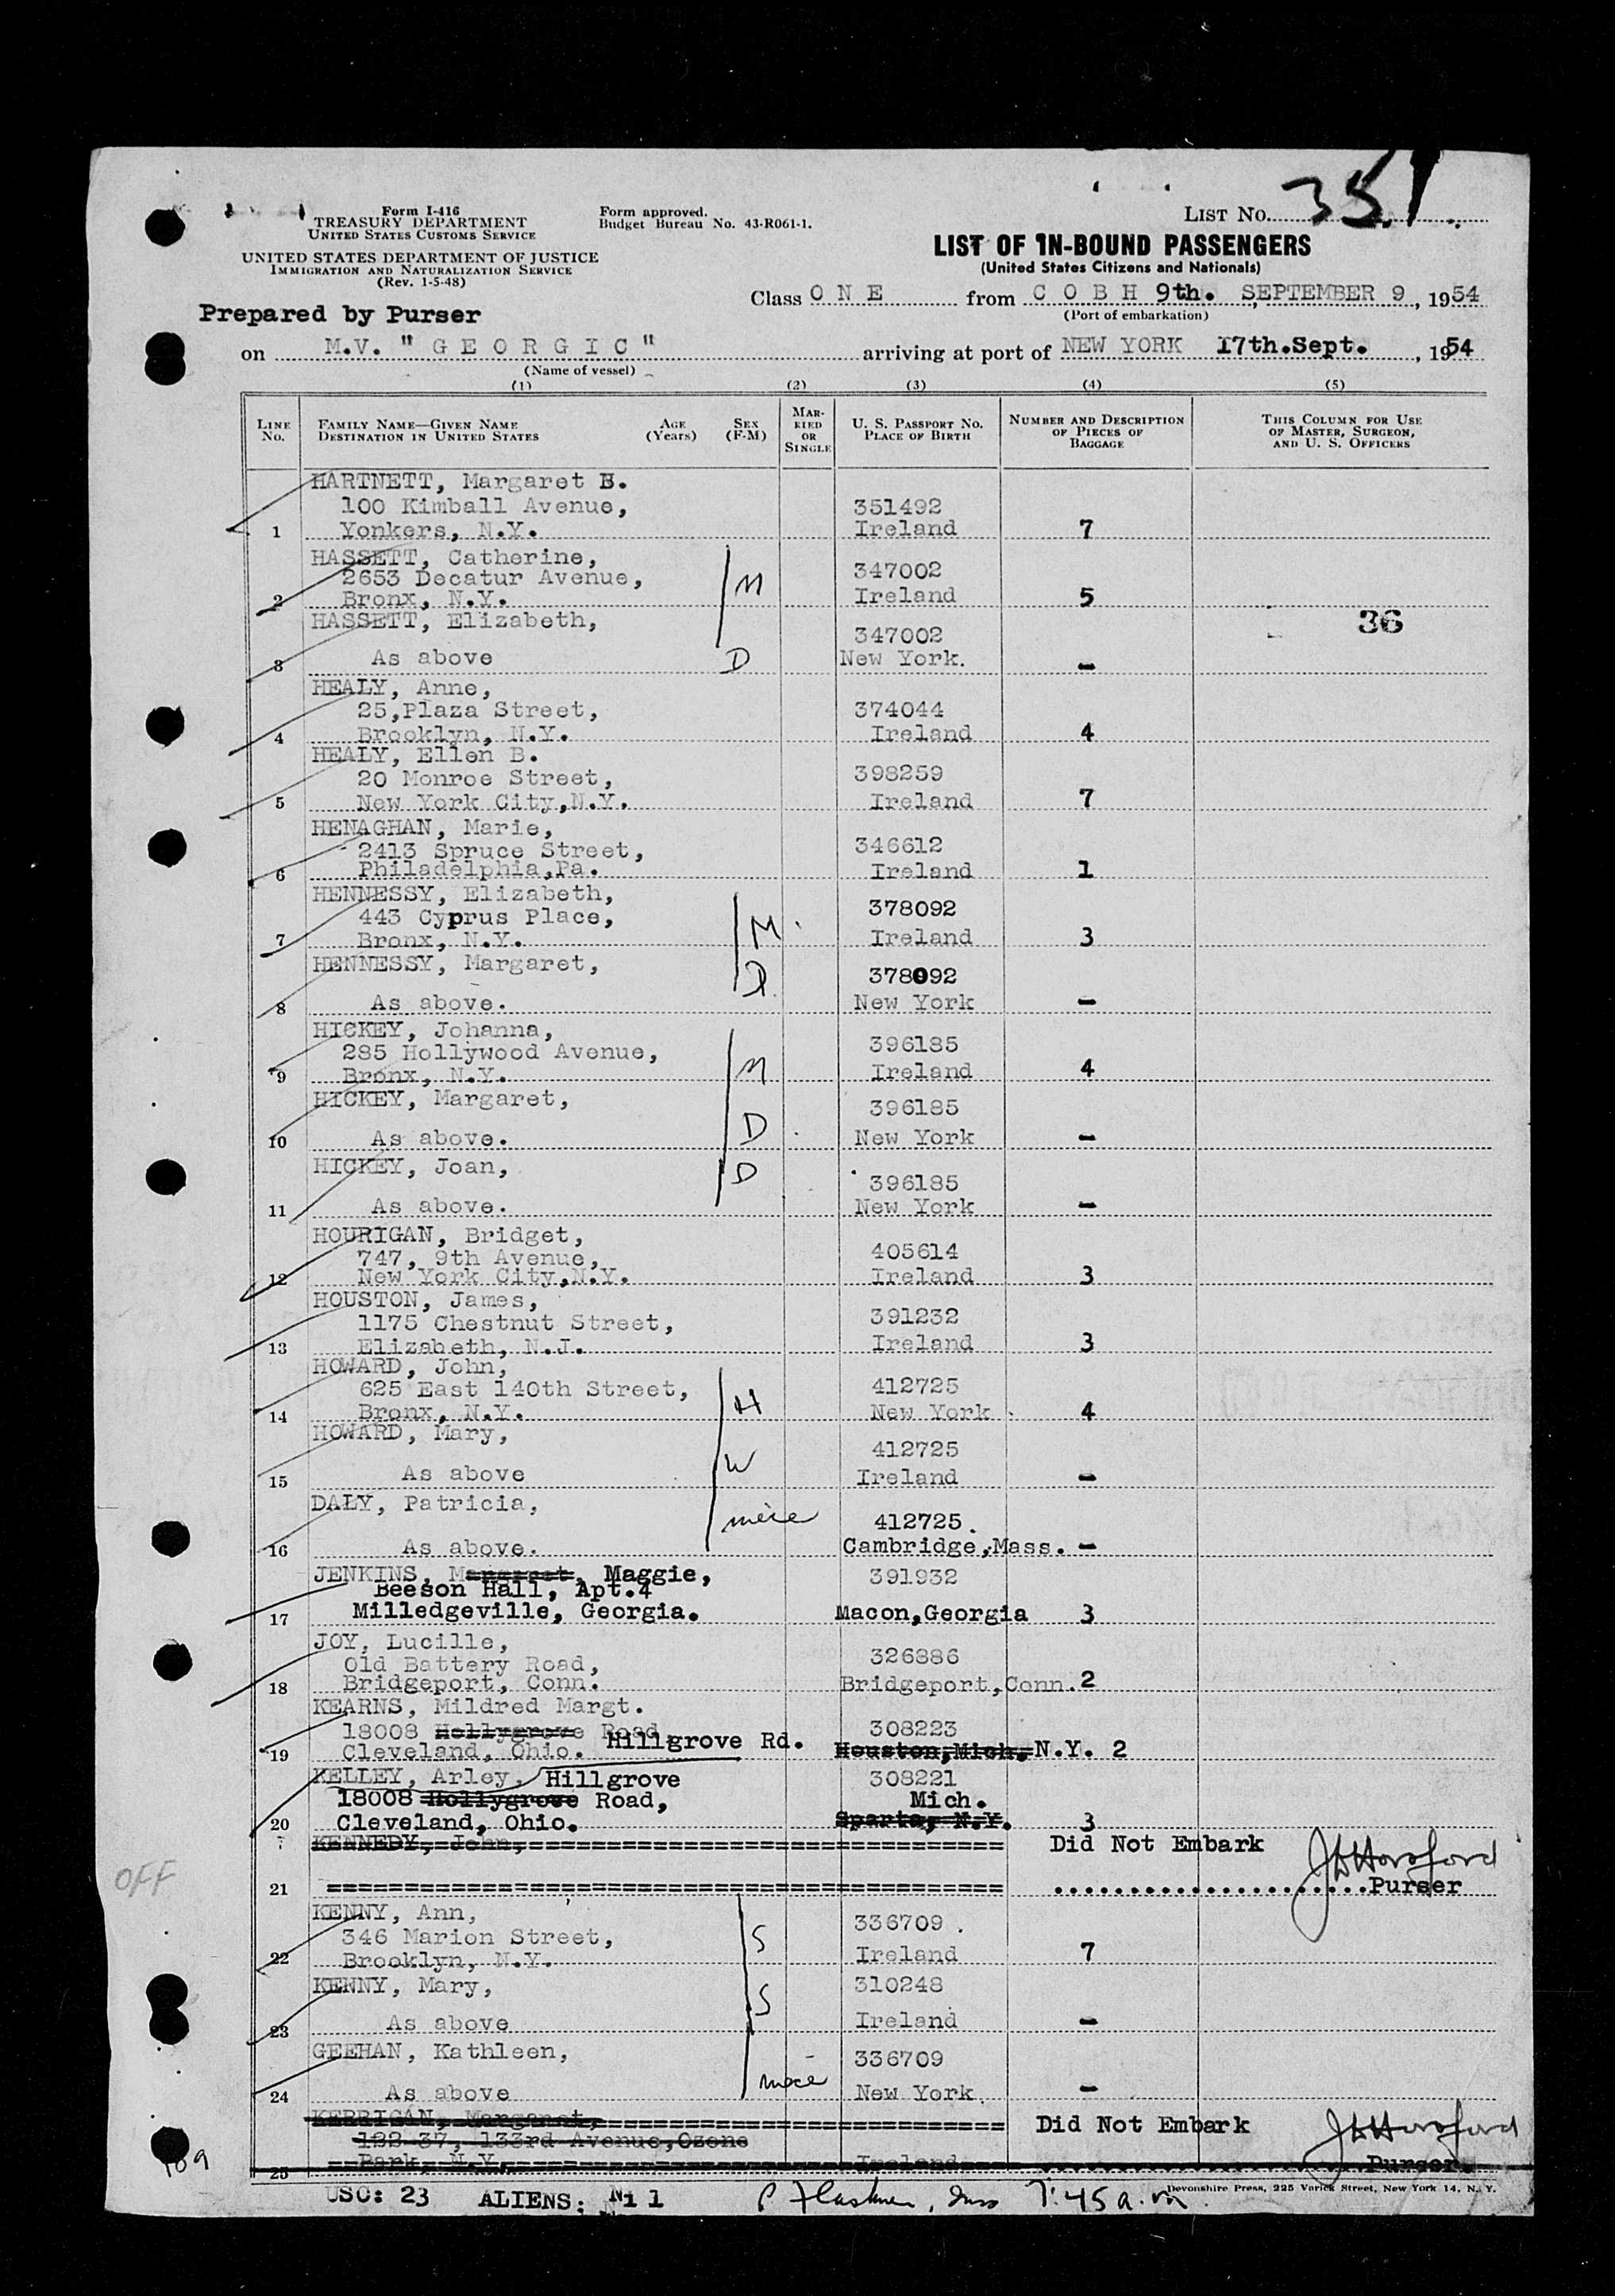 LIST NO. 351
Form I-416
TREASURY DEPARTMENT
UNITED STATES CUSTOMS SERVICE
Form approved.
Budget Bureau No. 43-R061-1.
UNITED STATES DEPARTMENT OF JUSTICE
IMMIGRATION AND NATURALIZATION SERVICE
(Rev. 1-5-48)
LIST OF IN-BOUND PASSENGERS
(United States Citizens and Nationals)
Prepared by Purser
Class O N E from C O B H 9th. SEPTEMBER 9, 1954
(Port of embarkation)
on M.V. "G E O R G I C" arriving at port of NEW YORK 17th.Sept., 1954
(Name of vessel)
(1) (2) (3) (4) (5)
LINE NO. FAMILY NAME—GIVEN NAME DESTINATION IN UNITED STATES AGE (Years) SEX (F-M) MARRIED OR SINGLE U. S. PASSPORT NO. PLACE OF BIRTH NUMBER AND DESCRIPTION OF PIECES OF BAGGAGE THIS COLUMN FOR USE OF MASTER, SURGEON, AND U. S. OFFICERS
HARTNETT, Margaret B.
100 Kimball Avenue, 351492
1 Yonkers, N.Y. Ireland 7
HASSETT, Catherine,
2653 Decatur Avenue, M 347002
2 Bronx, N.Y. Ireland 5
HASSETT, Elizabeth, 347002 36
3 As above D New York. -
HEALY, Anne,
25,Plaza Street, 374044
4 Brooklyn, N.Y. Ireland 4
HEALY, Ellen B.
20 Monroe Street, 398259
5 New York City,N.Y. Ireland 7
HENAGHAN, Marie,
2413 Spruce Street, 346612
6 Philadelphia,Pa. Ireland 1
HENNESSY, Elizabeth,
443 Cyprus Place, M 378092
7 Bronx, N.Y. Ireland 3
HENNESSY, Margaret, D 378092
8 As above. New York -
HICKEY, Johanna,
285 Hollywood Avenue, M 396185
9 Bronx, N.Y. Ireland 4
HICKEY, Margaret, 396185
10 As above. D New York -
HICKEY, Joan, D 396185
11 As above. New York -
HOURIGAN, Bridget,
747, 9th Avenue, 405614
12 New York City,N.Y. Ireland 3
HOUSTON, James,
1175 Chestnut Street, 391232
13 Elizabeth, N.J. Ireland 3
HOWARD, John,
625 East 140th Street, H 412725
14 Bronx, N.Y. New York 4
HOWARD, Mary, W 412725
15 As above Ireland -
DALY, Patricia, niece 412725.
16 As above. Cambridge,Mass. -
JENKINS, Margaret, Maggie, 391932
Beeson Hall, Apt.4
17 Milledgeville, Georgia. Macon,Georgia 3
JOY, Lucille,
Old Battery Road, 326886
18 Bridgeport, Conn. Bridgeport,Conn. 2
KEARNS, Mildred Margt.
18008 Hollygrove Road Hillgrove Rd. 308223
19 Cleveland, Ohio. Houston,Mich. N.Y. 2
KELLEY, Arley, Hillgrove 308221
18008 Hollygrove Road, Mich.
20 Cleveland, Ohio. Sparta, N.Y. 3
KENNEDY, John, Did Not Embark
OFF
21 Purser
KENNY, Ann,
346 Marion Street, S 336709
22 Brooklyn, N.Y. Ireland 7
KENNY, Mary, S 310248
23 As above Ireland -
GEEHAN, Kathleen, 336709
24 As above niece New York -
KERRIGAN, Margaret, Did Not Embark
122-37, 133rd Avenue,Ozone
25 Park, N.Y. Ireland Purser.
109
USC: 23 ALIENS: Nil 7:45 a.m.
Devonshire Press, 225 Varick Street, New York 14, N. Y.